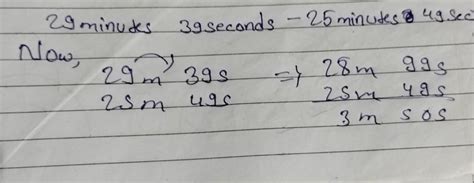 29 minutes 39 seconds - 25 minutes 49 sec
Now,
29m 39s => 28m 99s
25m 49s 25m 49s
3m 50s